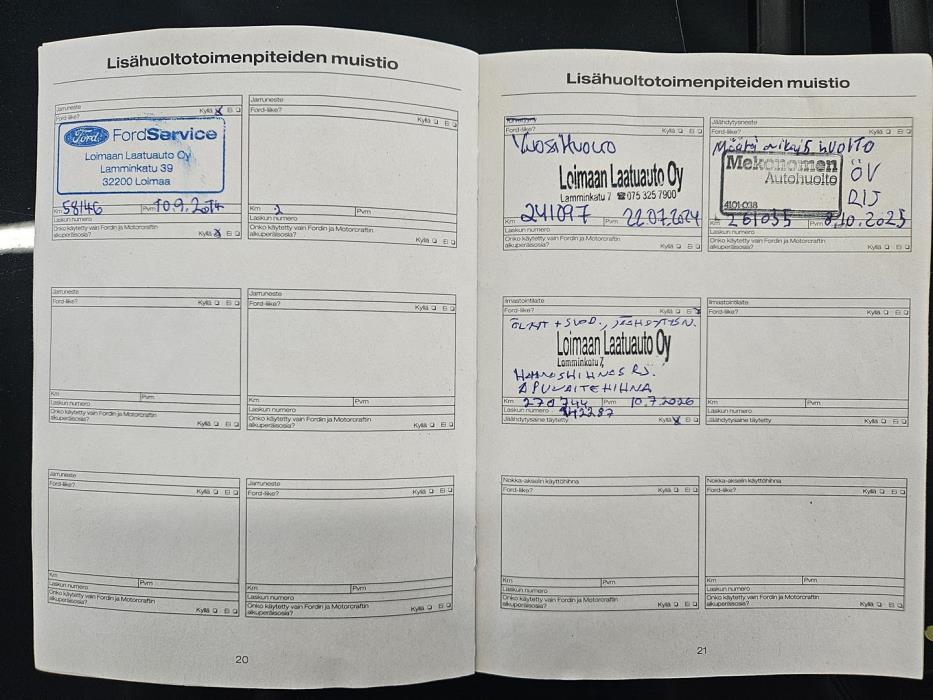 Lisähuoltotoimenpiteiden muistio
Jarruneste
Ford-liike? Kyllä Ei
Ford FordService
Loimaan Laatuauto Oy
Lamminkatu 39
32200 Loimaa
Km 58146 Pvm 10.9.2014
Laskun numero
Onko käytetty vain Fordin ja Motorcraftin
alkuperäisosia? Kyllä Ei
Jarruneste
Ford-liike? Kyllä Ei
Km Pvm
Laskun numero
Onko käytetty vain Fordin ja Motorcraftin
alkuperäisosia? Kyllä Ei
Jarruneste
Ford-liike? Kyllä Ei
Km Pvm
Laskun numero
Onko käytetty vain Fordin ja Motorcraftin
alkuperäisosia? Kyllä Ei
Jarruneste
Ford-liike? Kyllä Ei
Km Pvm
Laskun numero
Onko käytetty vain Fordin ja Motorcraftin
alkuperäisosia? Kyllä Ei
Jarruneste
Ford-liike? Kyllä Ei
Km Pvm
Laskun numero
Onko käytetty vain Fordin ja Motorcraftin
alkuperäisosia? Kyllä Ei
Jarruneste
Ford-liike? Kyllä Ei
Km Pvm
Laskun numero
Onko käytetty vain Fordin ja Motorcraftin
alkuperäisosia? Kyllä Ei
20
Lisähuoltotoimenpiteiden muistio
Ford-liike? Kyllä Ei
Vuosihuolto
Loimaan Laatuauto Oy
Lamminkatu 7 ☎ 075 325 7900
Km 241097 Pvm 22.07.2024
Laskun numero
Onko käytetty vain Fordin ja Motorcraftin
alkuperäisosia? Kyllä Ei
Jäähdytysneste
Ford-liike? Kyllä Ei
HUOLTO
Mekonomen
Autohuolto
ÖV
4101-038
Km 261035 Pvm 8.10.2025
Laskun numero
Onko käytetty vain Fordin ja Motorcraftin
alkuperäisosia? Kyllä Ei
Ilmastointilaite
Ford-liike? Kyllä Ei
ÖLJYT + SUOD., JÄÄHDYTYSN.
Loimaan Laatuauto Oy
Lamminkatu 7,
HAMMASHIHNAS RJ.
APULAITEHIHNA
Km 270744 Pvm 10.7.2026
Laskun numero 942287
Jäähdytysaine täytetty Kyllä Ei
Ilmastointilaite
Ford-liike? Kyllä Ei
Km Pvm
Laskun numero
Jäähdytysaine täytetty Kyllä Ei
Nokka-akselin käyttöhihna
Ford-liike? Kyllä Ei
Km Pvm
Laskun numero
Onko käytetty vain Fordin ja Motorcraftin
alkuperäisosia? Kyllä Ei
Nokka-akselin käyttöhihna
Ford-liike? Kyllä Ei
Km Pvm
Laskun numero
Onko käytetty vain Fordin ja Motorcraftin
alkuperäisosia? Kyllä Ei
21